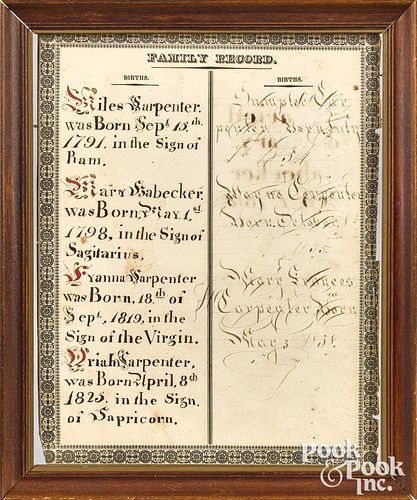 FAMILY RECORD.
BIRTHS.
Miles Carpenter,
was Born Sept. 15.th,
1791. in the Sign of
Ram.
Mary Habecker
was Born May. 1.st
1798, in the Sign of
Sagitarius.
Fyanna Carpenter
was Born, 18.th of
Sept. 1819, in the
Sign of the Virgin.
Uriah Carpenter,
was Born April, 8th
1825. in the Sign.
of Capricorn.
BIRTHS.
Car
penter Born July
1854
Wayne Carpenter
Born October
1855
Mary Frances
Carpenter Born
May 3
Pook
& Pook
Inc.